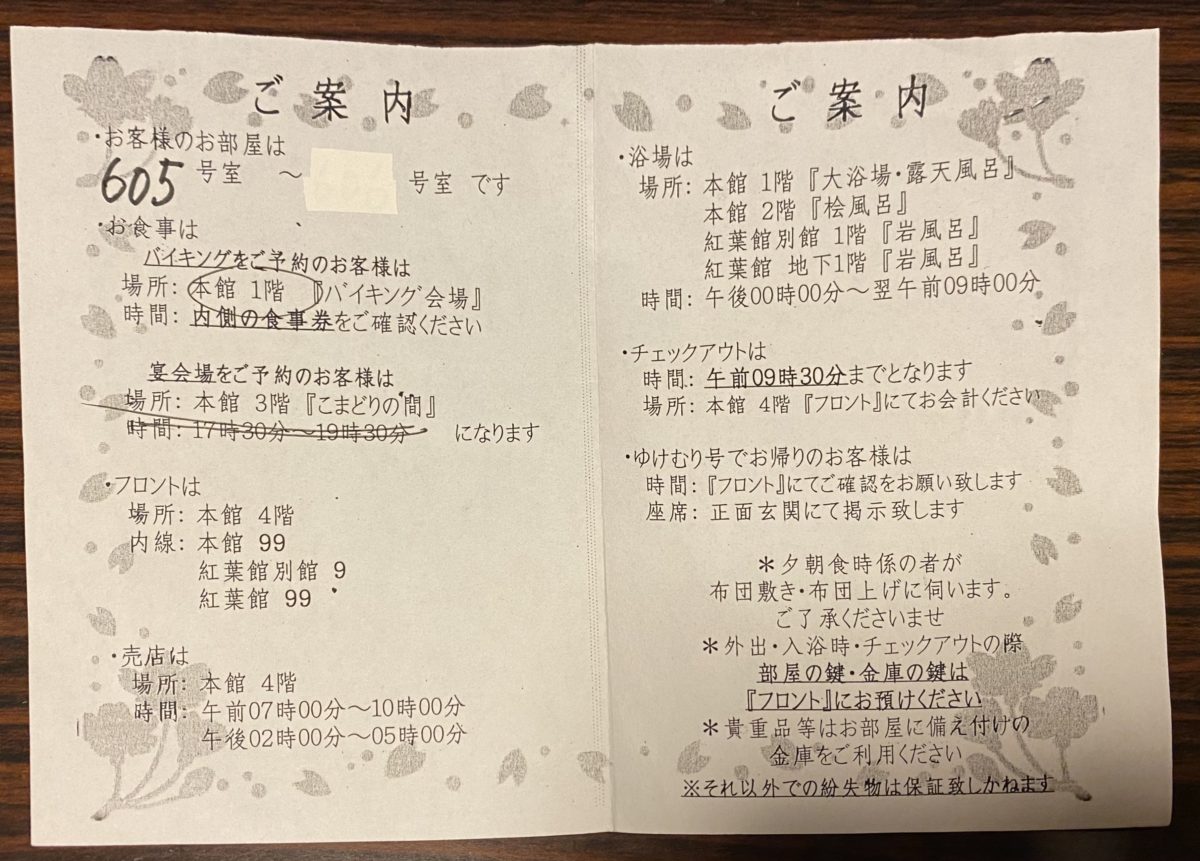 ご案内
・お客様のお部屋は
605 号室 ～ 号室 です
・お食事は
バイキングをご予約のお客様は
場所: 本館 1階 『バイキング会場』
時間: 内側の食事券をご確認ください
宴会場をご予約のお客様は
場所: 本館 3階 『こまどりの間』
時間: 17時30分～19時30分 になります
・フロントは
場所: 本館 4階
内線: 本館 99
紅葉館別館 9
紅葉館 99
・売店は
場所: 本館 4階
時間: 午前07時00分～10時00分
午後02時00分～05時00分
ご案内
・浴場は
場所: 本館 1階 『大浴場・露天風呂』
本館 2階 『桧風呂』
紅葉館別館 1階 『岩風呂』
紅葉館 地下1階 『岩風呂』
時間: 午後00時00分～翌午前09時00分
・チェックアウトは
時間: 午前09時30分までとなります
場所: 本館 4階 『フロント』にてお会計ください
・ゆけむり号でお帰りのお客様は
時間: 『フロント』にてご確認をお願い致します
座席: 正面玄関にて掲示致します
＊夕朝食時係の者が
布団敷き・布団上げに伺います。
ご了承くださいませ
＊外出・入浴時・チェックアウトの際
部屋の鍵・金庫の鍵は
『フロント』にお預けください
＊貴重品等はお部屋に備え付けの
金庫をご利用ください
※それ以外での紛失物は保証致しかねます